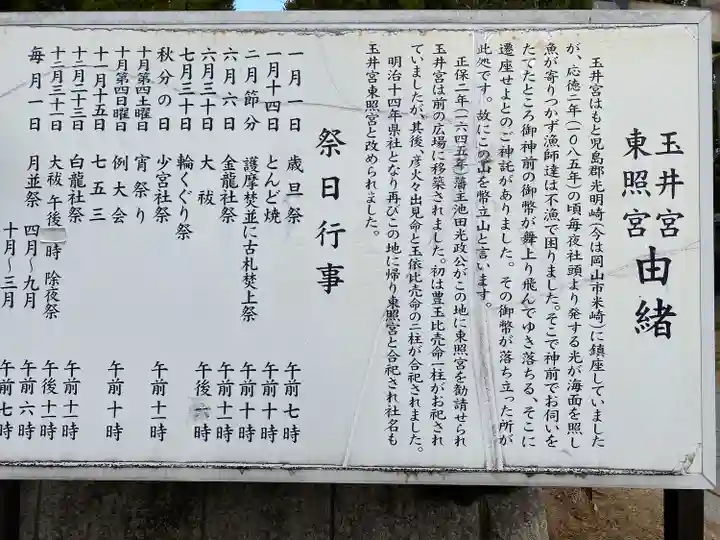 玉井宮
東照宮
由緒
玉井宮はもと児島郡光明崎(今は岡山市米崎)に鎮座していました
が、応徳二年(一〇八五年)の頃毎夜社頭より発する光が海面を照し
魚が寄りつかず漁師達は不漁で困りました。そこで神前でお伺いを
たてたところ御神前の御幣が舞上り飛んでゆき落ちる、そこに
遷座せよとのご神託がありました。その御幣が落ち立った所が
此処です。故にこの山を幣立山と言います。
正保二年(一六四五年)藩主池田光政公がこの地に東照宮を勧請せられ
玉井宮は前の広場に移築されました。初は豊玉比売命一柱がお祀され
ていましたが、其後、彦火々出見命と玉依比売命の二柱が合祀されました。
明治十四年県社となり再びこの地に帰り東照宮と合祀され社名も
玉井宮東照宮と改められました。
祭日行事
一月一日 歳旦祭 午前七時
一月十四日 とんど焼 午前十時
二月節分 護摩焚並に古札焚上祭 午前十時
六月六日 金龍社祭 午前十一時
六月三十日 大祓 午後六時
七月三十日 輪くぐり祭
秋分の日 少宮社祭 午前十一時
十月第四土曜日 宵祭り
十月第四日曜日 例大会 午前十時
十一月十五日 七五三
十二月二十三日 白龍社祭 午前十一時
十二月三十一日 大祓 午後 時 除夜祭 午後十一時
毎月一日 月並祭 四月~九月 午前六時
十月~三月 午前七時